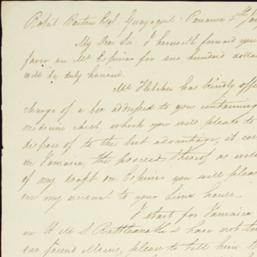 Robt Barton Esq. Guayaquil. Panama 5th
My Dear Sir I herewith forward you
favor on Mr for one hundred
will be duly honored.
Mr Fletcher has kindly
charge of a box addressed to you containing
medicine chest, which you will please to
dispose of to the best advantage, it cost
in Jamaica, the proceeds thereof as well
of my draft on you will please
on my account to your Lima house.
I start for Jamaica
on H M S & have not
our friend please to tell him